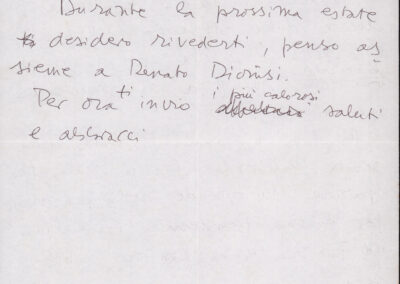 Durante la prossima estate
desidero rivederti, penso as
sieme a Renato Dionisi.
Per ora ti invio i più calorosi saluti
e abbracci